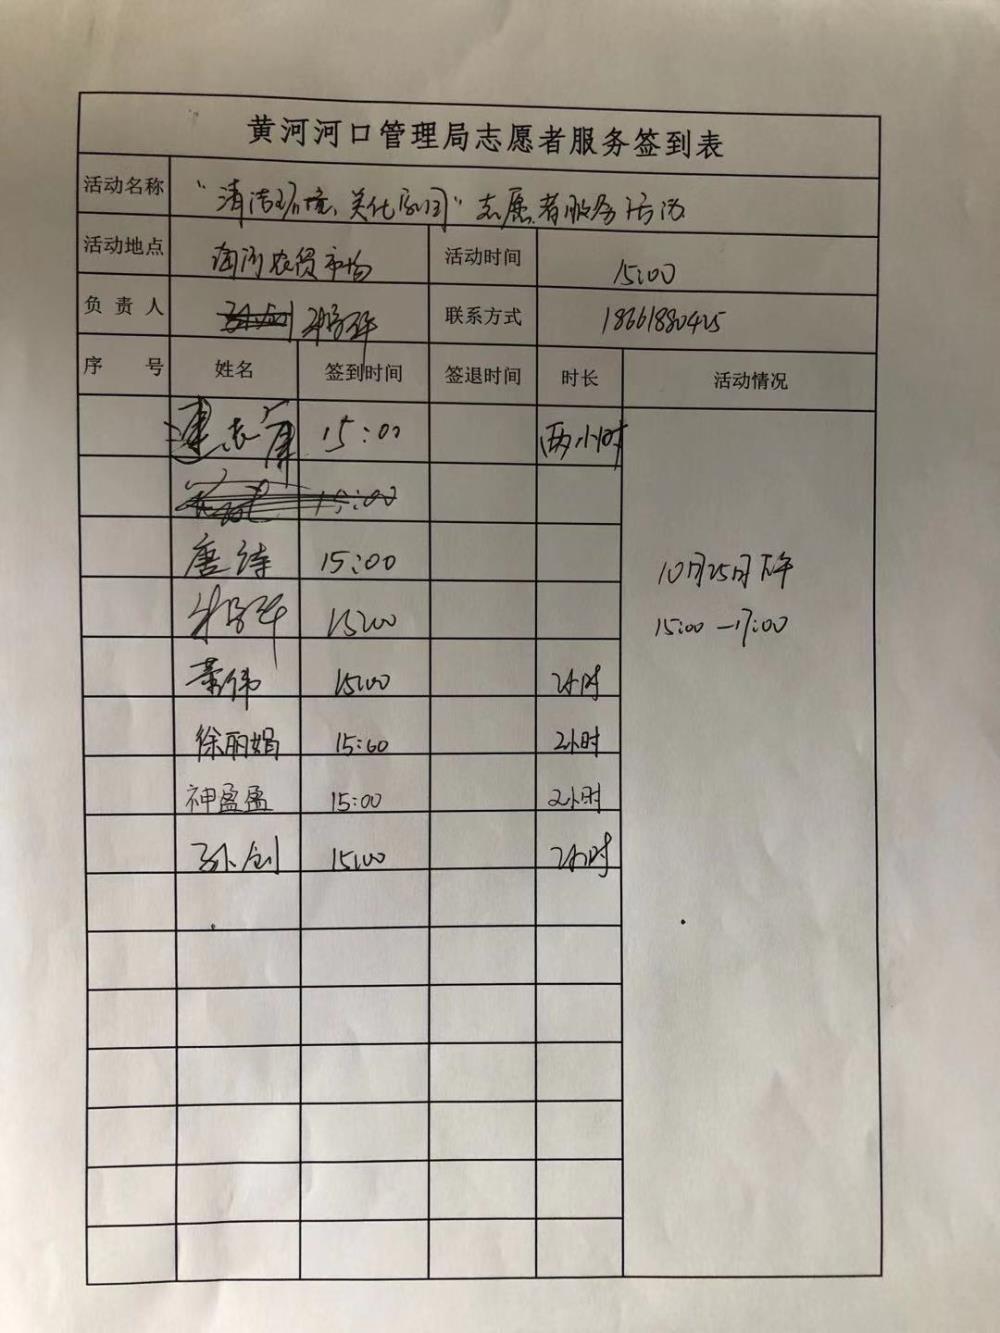 黄河河口管理局志愿者服务签到表
活动名称 "清洁环境、美化家园"志愿者服务活动
活动地点 农贸市场 活动时间 15:00
负责人 联系方式 18661880425
序号 姓名 签到时间 签退时间 时长 活动情况
15:00 两小时
15:00
唐诗 15:00
15:00
10月25日下午
15:00—17:00
董伟 15:00 2小时
徐丽娟 15:00 2小时
神盈盈 15:00 2小时
孙创 15:00 2小时